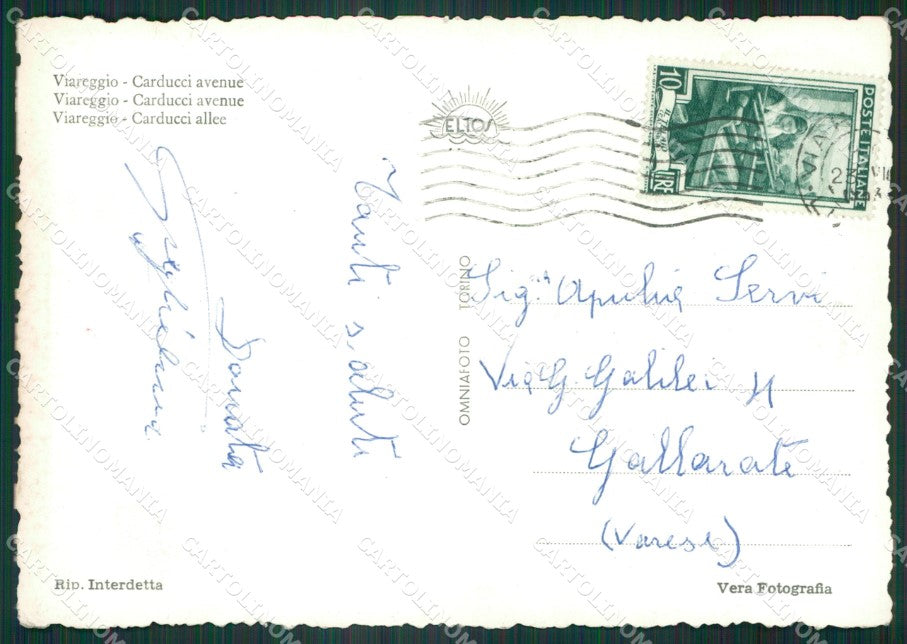 Viareggio - Carducci avenue
Viareggio - Carducci avenue
Viareggio - Carducci allee
ELTOS
10
LIRE
POSTE ITALIANE
Tanti saluti
Donata
OMNIAFOTO TORINO
Sig.na Apulia Servi
Via G. Galilei 11
Gallarate
(Varese)
Rip. Interdetta
Vera Fotografia
CARTOLINOMANIA